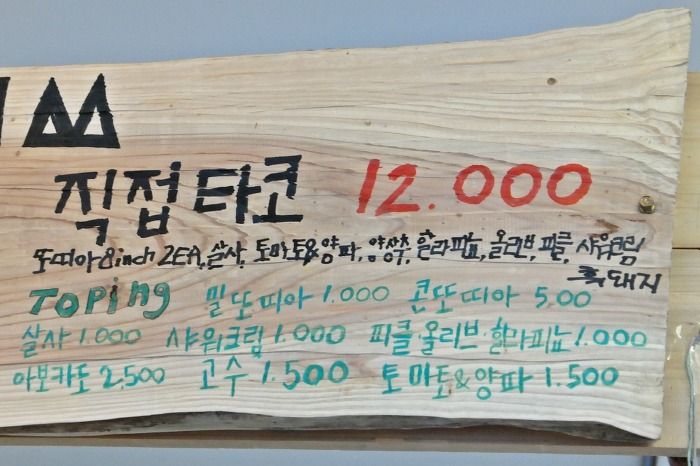 직접타코 12.000
또띠아8inch 2EA, 살사, 토마토&양파, 양상추, 할라피뇨, 올리브, 피클, 샤워크림
흑돼지
TOPing 밀또띠아 1.000 콘또띠아 5.00
살사 1.000 샤워크림 1.000 피클·올리브·할라피뇨 1.000
아보카도 2.500 고수 1.500 토마토&양파 1.500